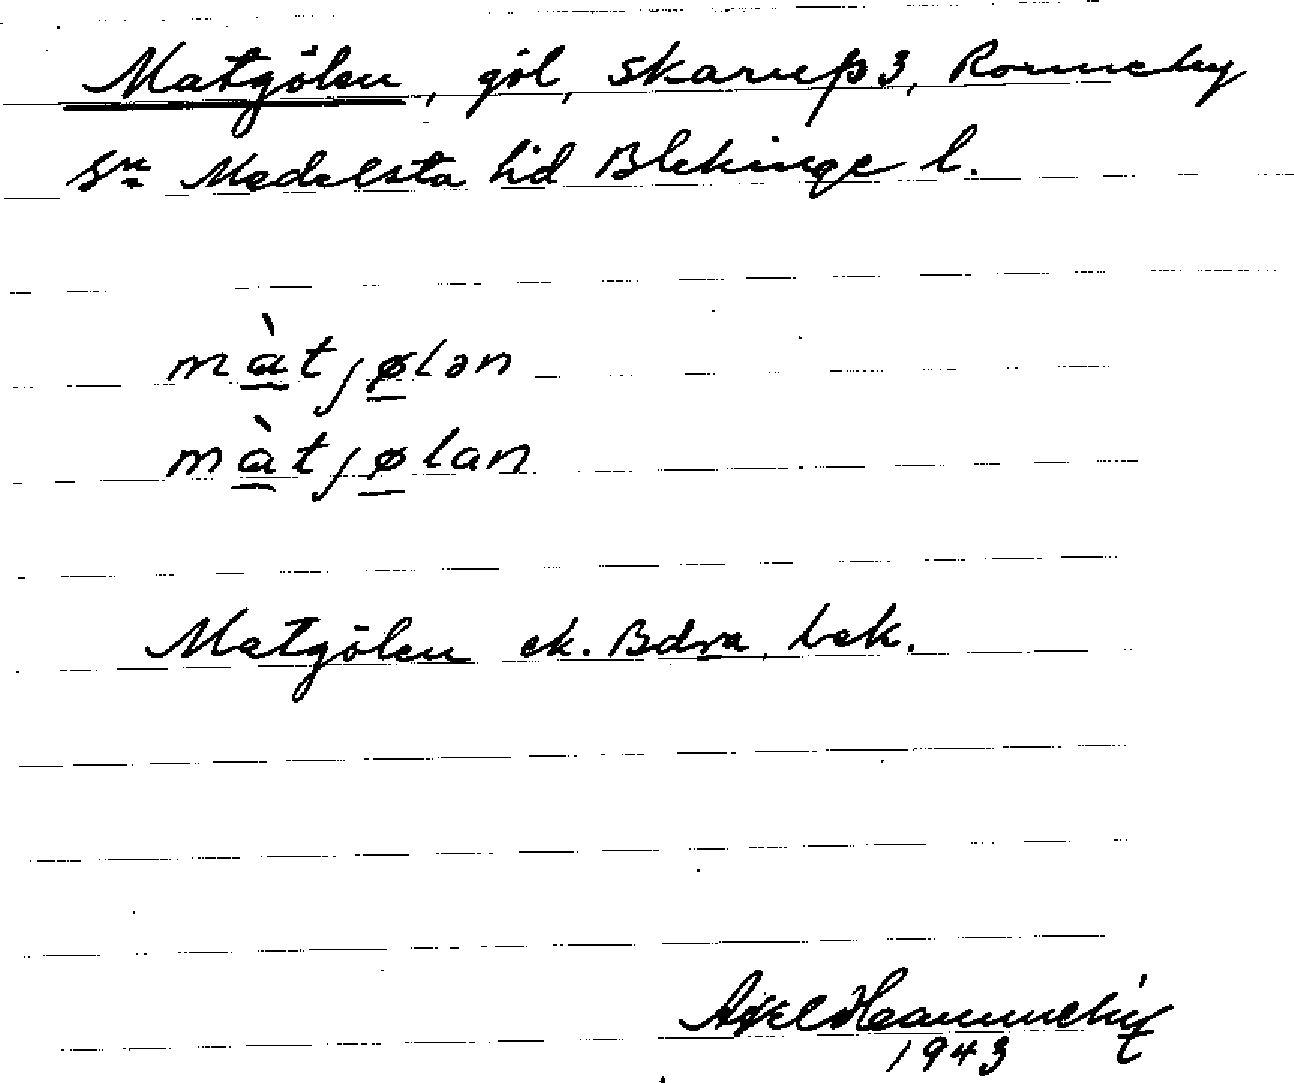 Matgölen, göl, Skarup 3, Ronneby
Sn Medelsta hd Blekinge l.
màtjøLən
màtjøLan
Matgölen ek. Bdna, bek.
Axel
1943